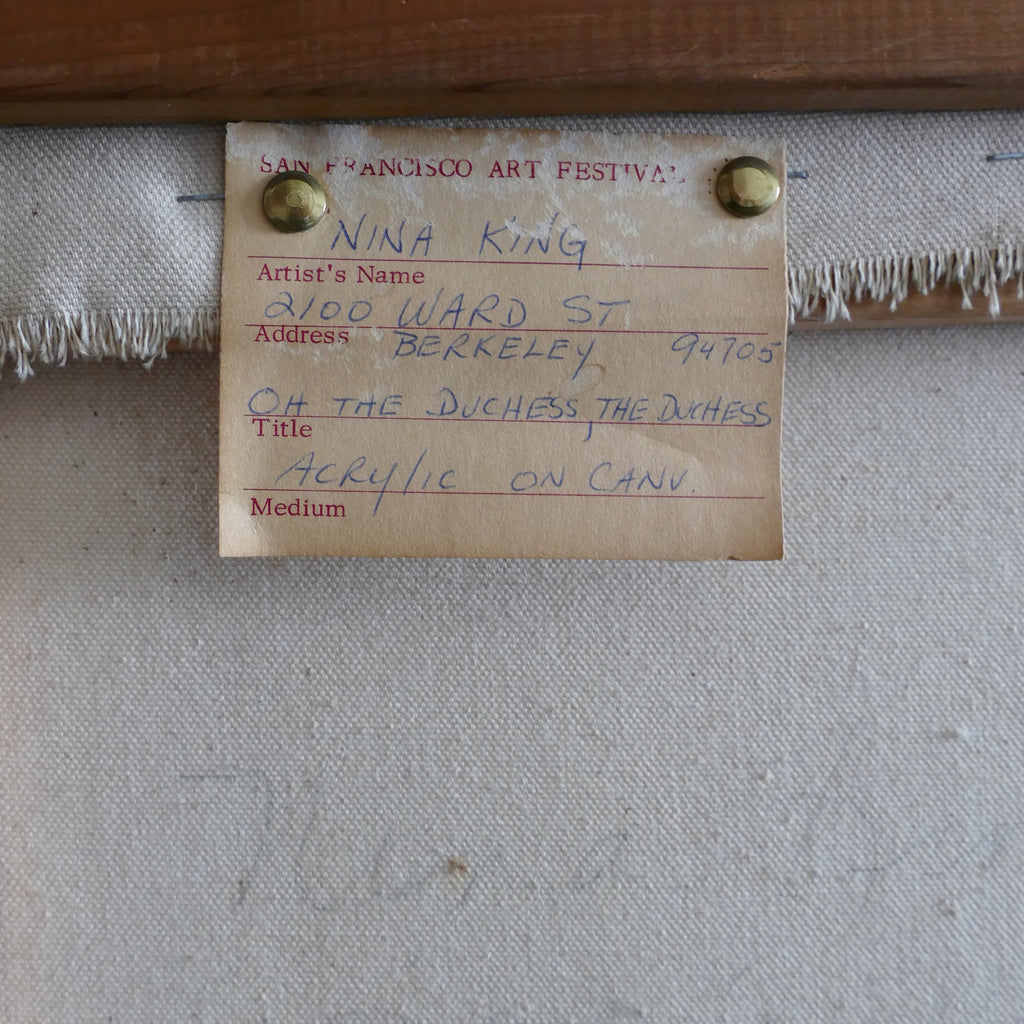 SAN FRANCISCO ART FESTIVAL
NINA KING
Artist's Name
2100 WARD ST
Address BERKELEY 94705
OH THE DUCHESS, THE DUCHESS
Title
ACRYlIC ON CANV.
Medium